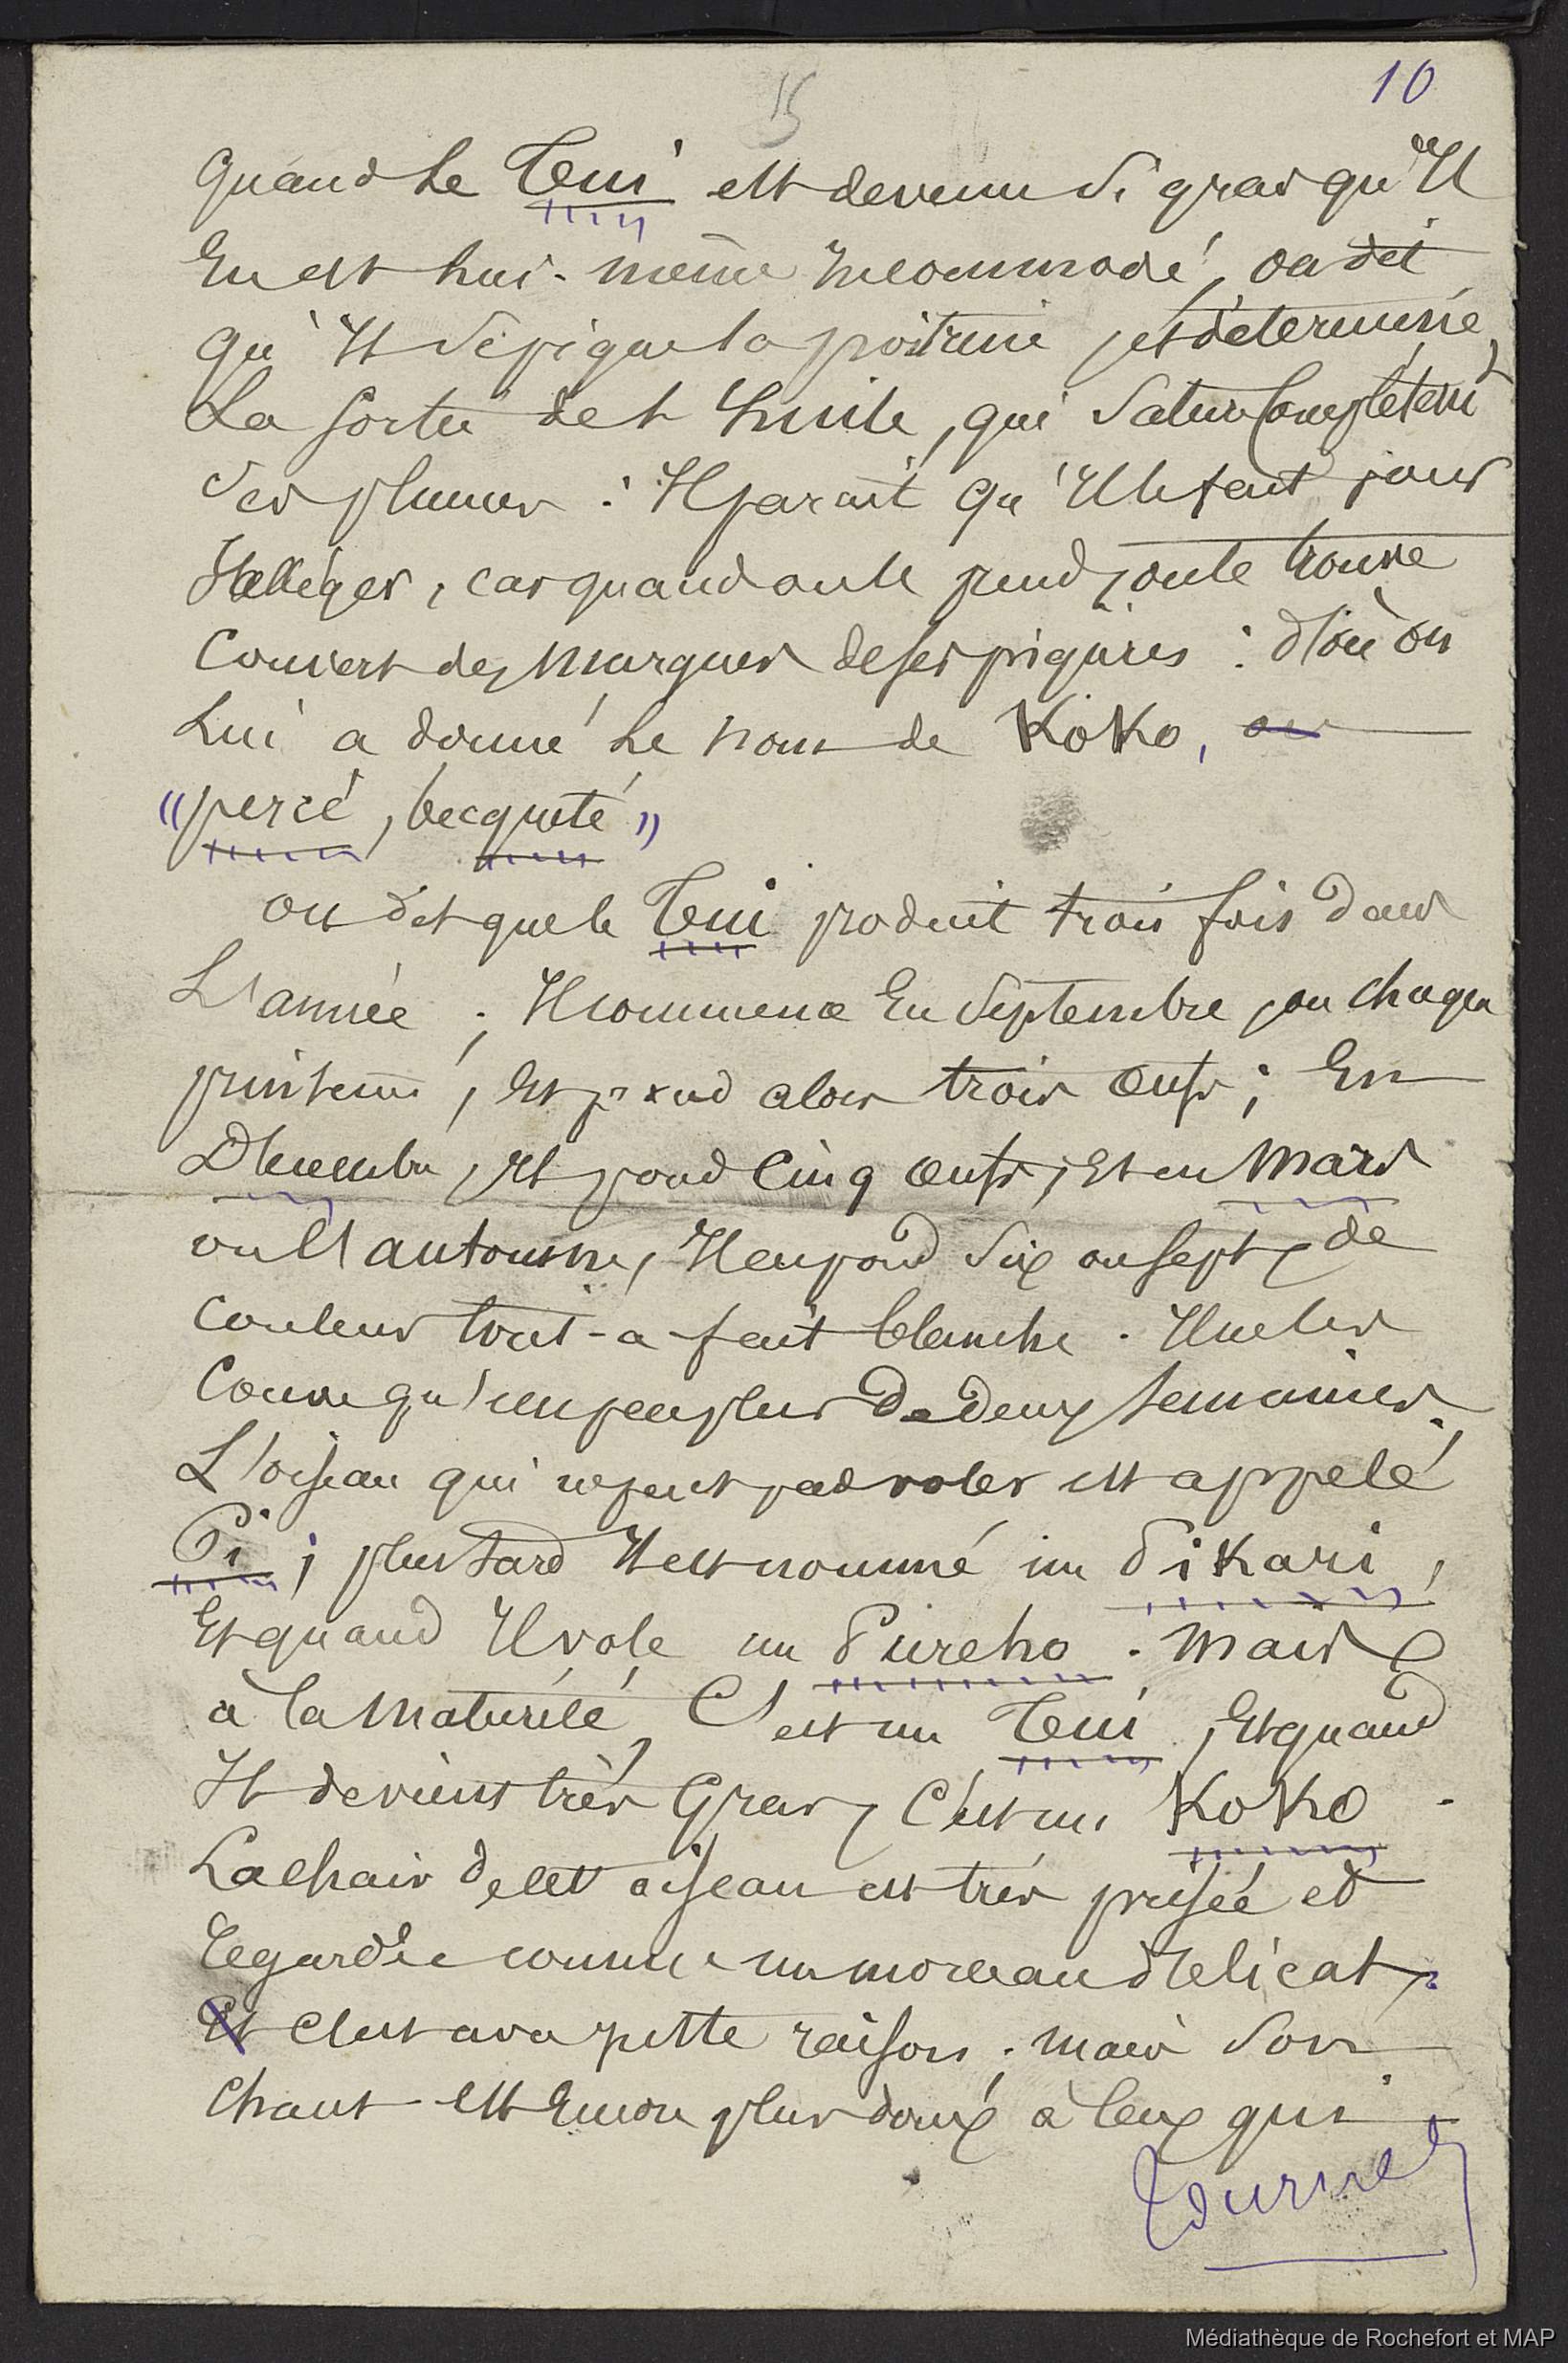 10
15
Quand le Teui est devenu si gras qu'Il
En est lui-même Incommodé, on dit
qu'Il se pique la poitrine, et détermine,
La sortie de l'huile, qui sature complètem^t
ses plumes : Il parait qu'Il le fait pour
s'alléger, car quand on le prend, on le trouve
Couvert des marques de ses piqûres : d'où on
Lui a donné le nom de Koko,
"percé, becqueté"
on dit que le Teui produit trois fois dans
L'année ; Il commence En Septembre, ou chaque
printems, Et pond alors trois œufs ; En
Décembre, Il pond Cinq œufs, Et en Mars
ou l'automne, Il en pond Six ou sept, de
couleur tout-a-fait blanche. Il ne les
Couve qu'un peu plus de deux semaines.
L'oiseau qui ne peut pas voler est appelé
Pi ; plus tard Il est nommé un Pikari,
Et quand Il vole un Pureho. Mais
à la Maturité, C'est un Teui, Et quand
Il devient très Gras, C'est un KoKo.
La chair de cet oiseau est très prisée et
regardée comme un morceau délicat,
C'est avec juste raison ; mais Son
Chant est Encore plus doux à Ceux qui
Tournez
Médiathèque de Rochefort et MAP